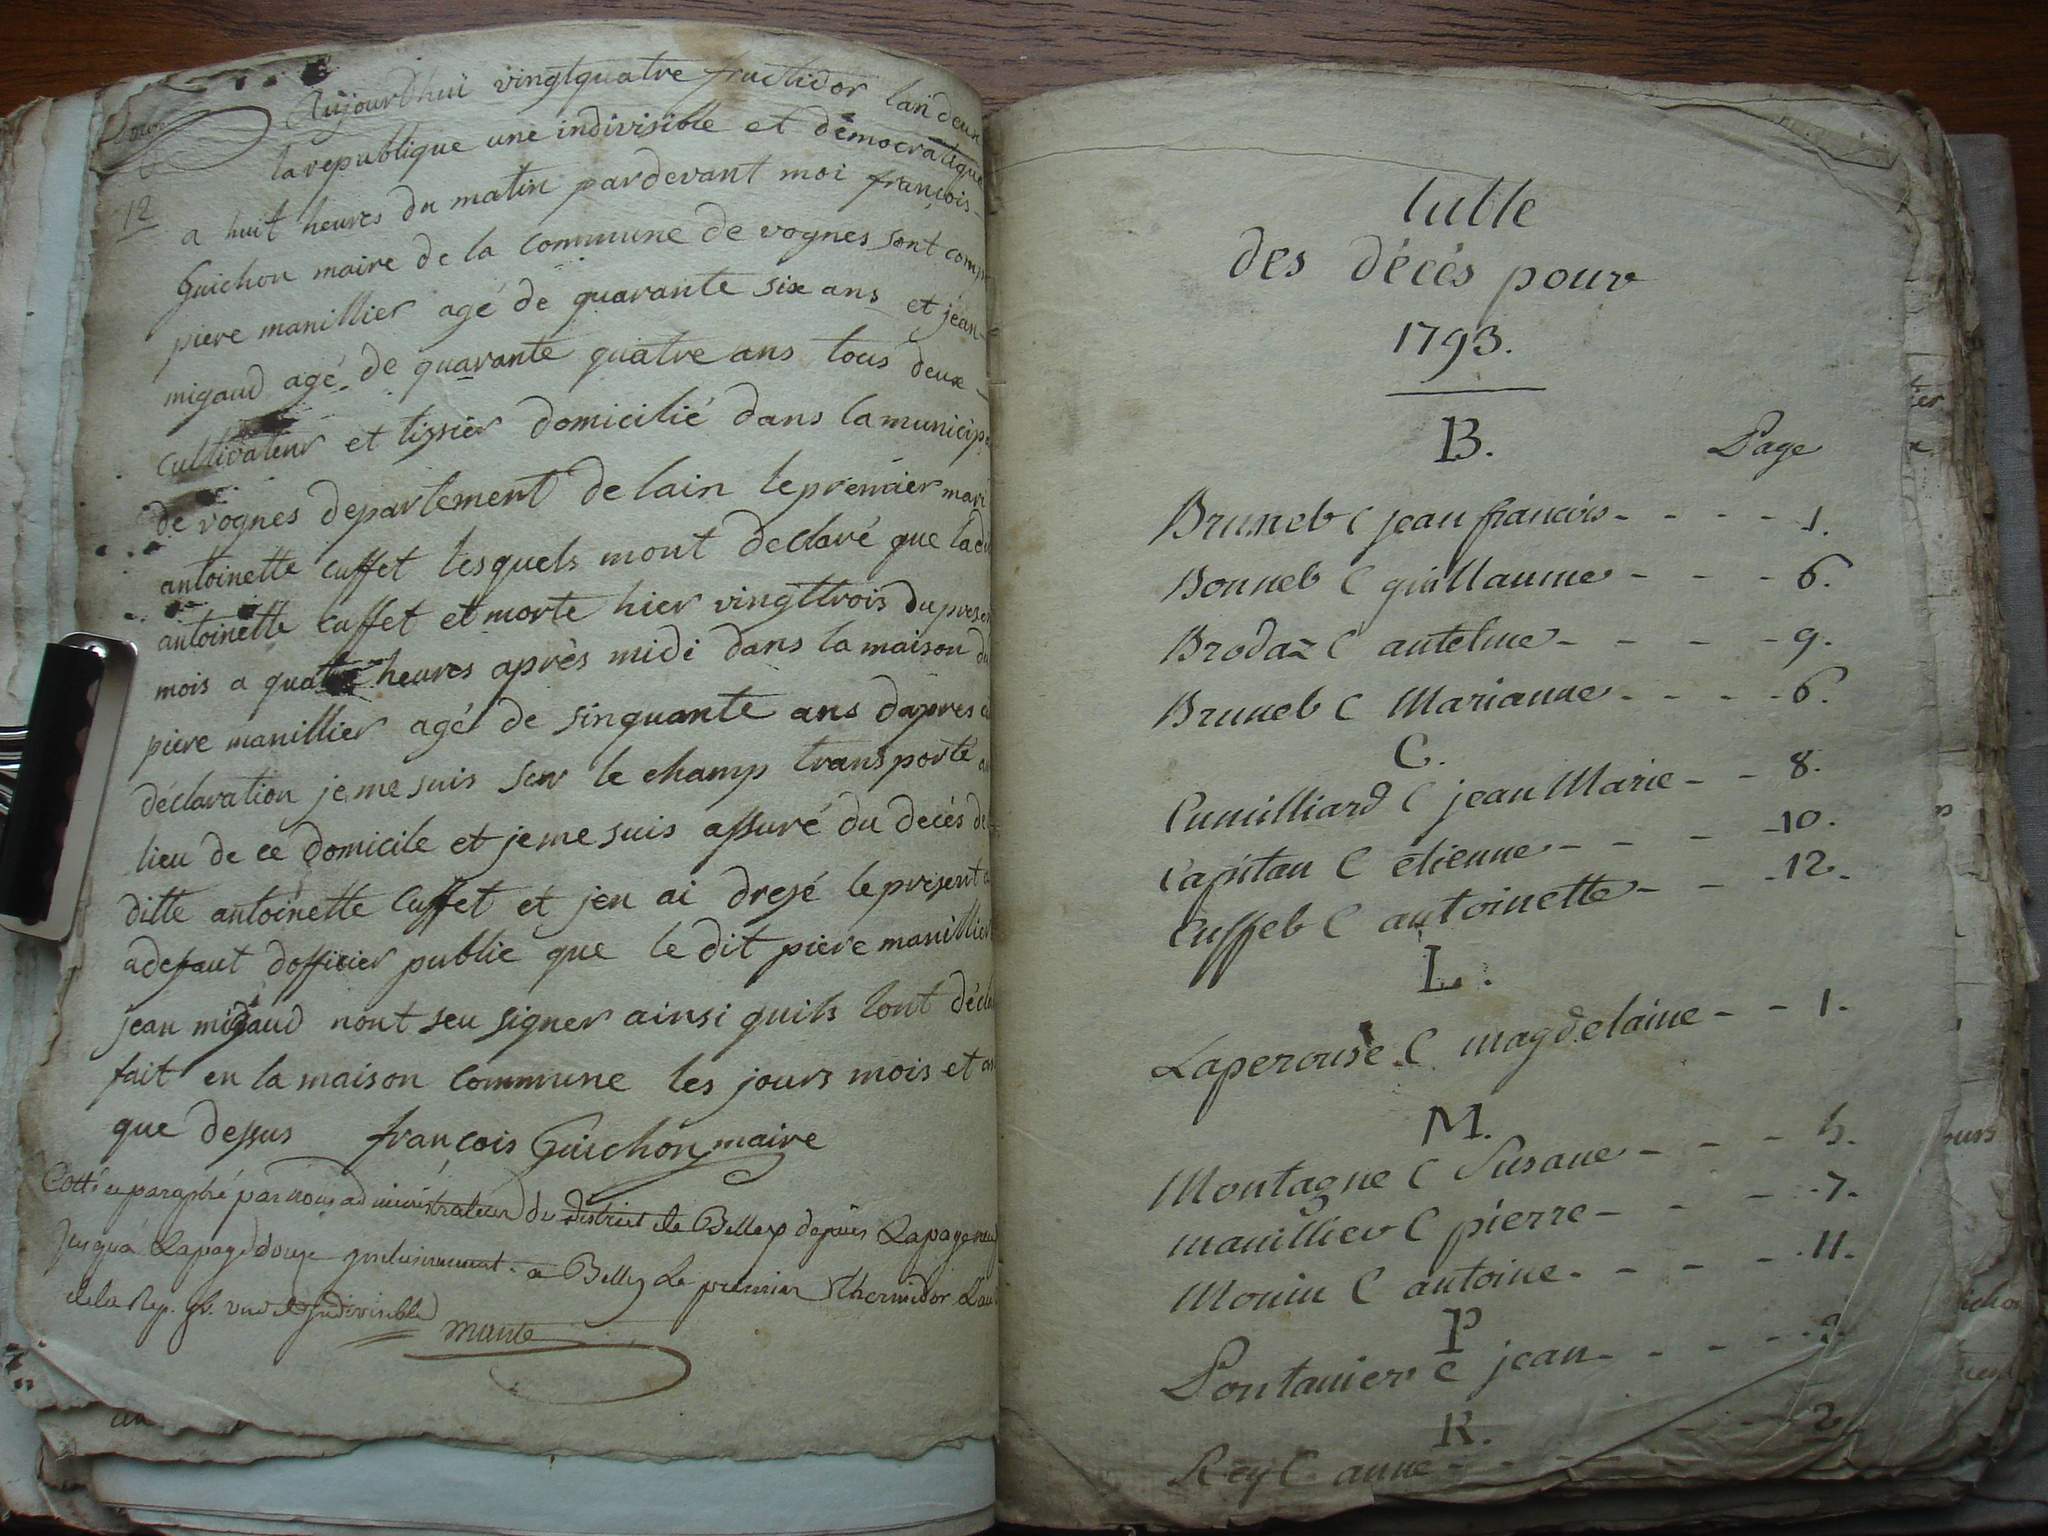 12
Aujourdhui vingtquatre fructidor lan deux
la republique une indivisible et démocratique
a huit heures du matin pardevant moi françois
Guichon maire de la commune de vognes sont comp
piere manillier agé de quarante six ans et jéan
migaud agé de quarante quatre ans tous deux
cultivateur et tissier domicilié dans la municip
de vognes departement de lain le premier mari
antoinette cuffet lesquels mont declaré que la
antoinette cuffet et morte hier vingttrois du presen
mois a quatre heures après midi dans la maison du
piere manillier agé de sinquante ans dapres
déclaration je me suis sur le champ transporté au
lieu de ce domicile et je me suis assuré du decés de
ditte antoinette Cuffet et jen ai dresé le present
a defaut dofficier public que le dit piere manillier
jean migaud nont seu signer ainsi quils lont décla
fait en la maison commune les jours mois et an
que dessus françois Guichon maire
Cotté et paraphé par nous administrateur du district de Belley depuis La page neuf
Jusqua La page douze inclusivement a Belley Le premier Thermidor Lan
de la Rep. fr. une et Indivisible
table
des décés pour
1793.
B. Page
Bruneb C jean francois - - - - 1.
Bonneb C guillaume - - - 6.
Brodaz C antelme - - - - 9.
Bruneb C Marianne - - - - 6.
C.
Cumilliard C jean Marie - - 8.
Capitan C etienne - - - 10.
Cuffeb C antoinette - - - 12.
L.
Laperouse C magdelaine - - 1.
M.
Montagne C Susane - - - 5.
manillier C pierre - - - 7.
Monin C antoine - - - - 11.
P
Pontanier C jean - - - -
R.
Rey C anne - - - - 2.